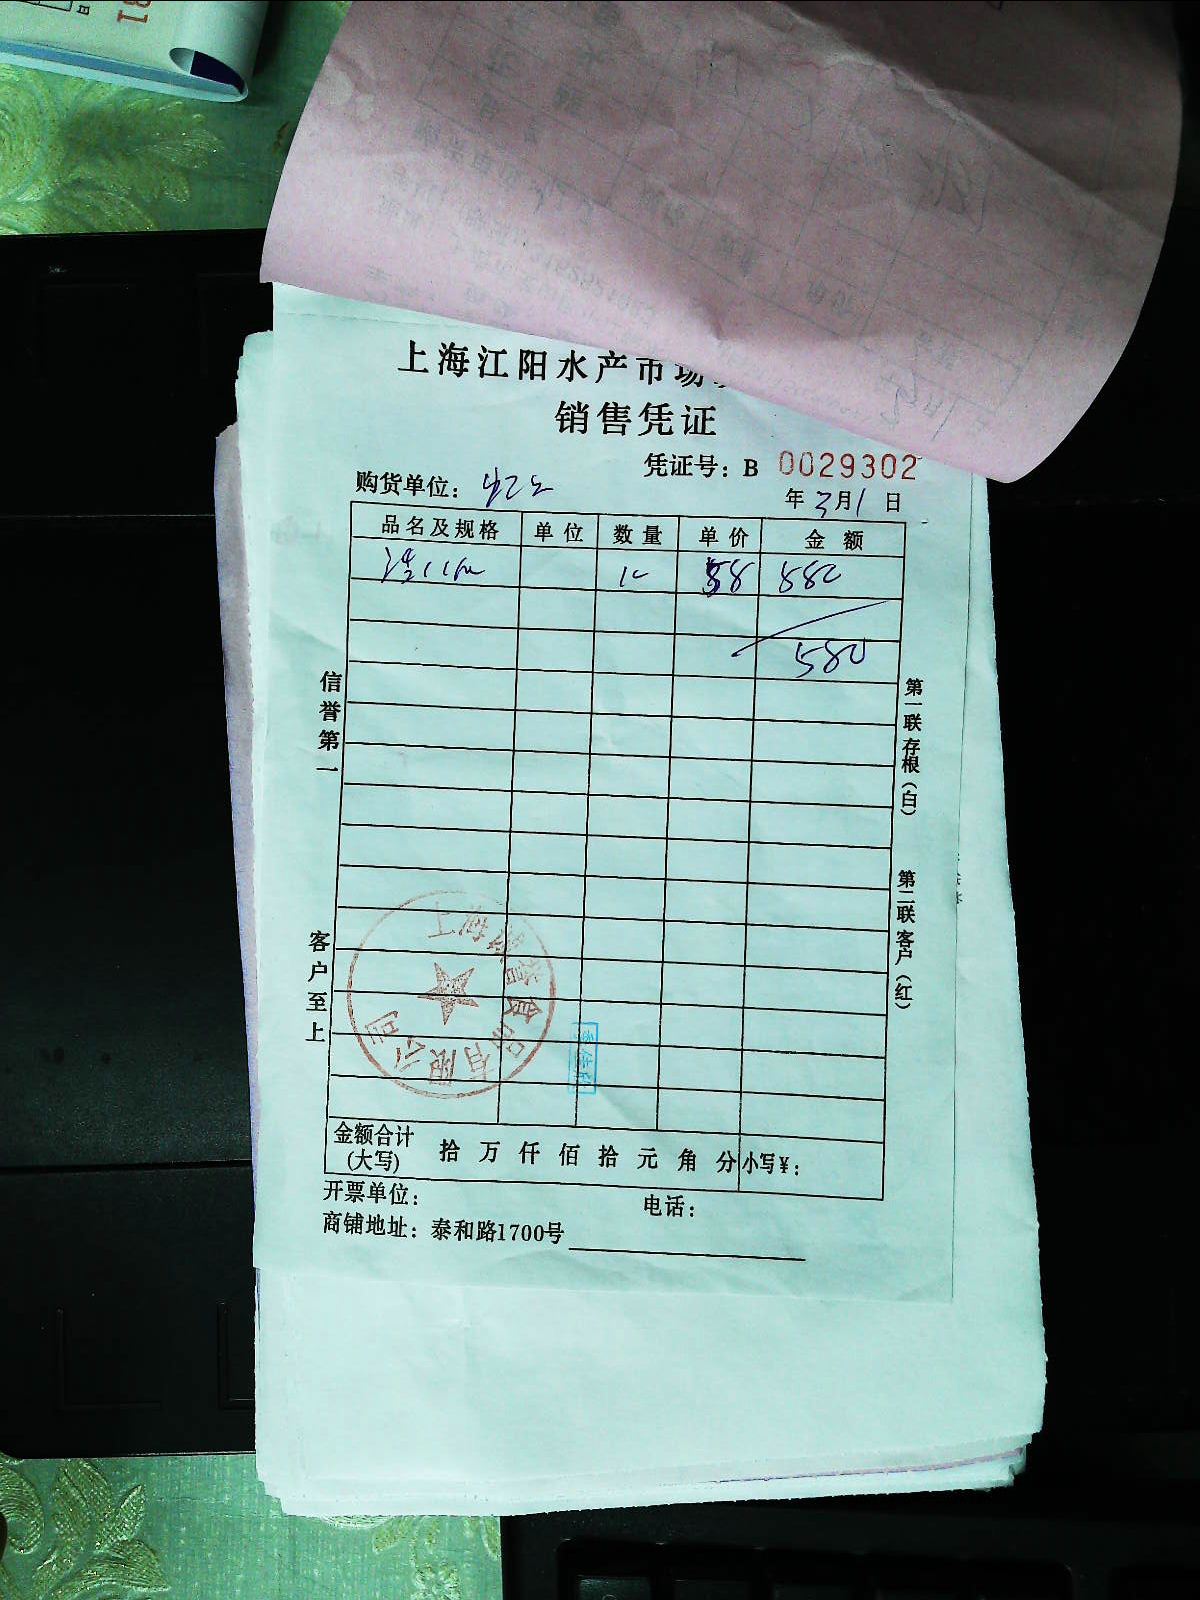 上海江阳水产市场
销售凭证
凭证号：B 0029302
购货单位：
年3月1日
品名及规格 单位 数量 单价 金额
58 580
580
信誉第一
客户至上
第一联存根（白）
第二联客户（红）
食品有限公司
金额合计(大写) 拾 万 仟 佰 拾 元 角 分 小写¥：
开票单位： 电话：
商铺地址：泰和路1700号